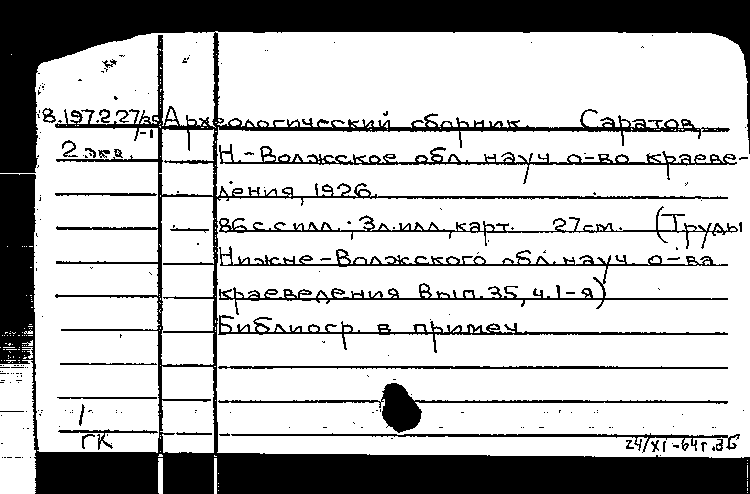 8.197.2.27/35 Археологический сборник. Саратов,
/-1
2 экз. Н.-Волжское обл. науч. о-во краеве-
дения, 1926.
86 с. с илл.; 3 л. илл., карт. 27 см. (Труды
Нижне-Волжского обл. науч. о-ва
краеведения Вып. 35, ч. 1-я)
Библиогр. в примеч.
1
ГК
24/XI-64г. ЗБ